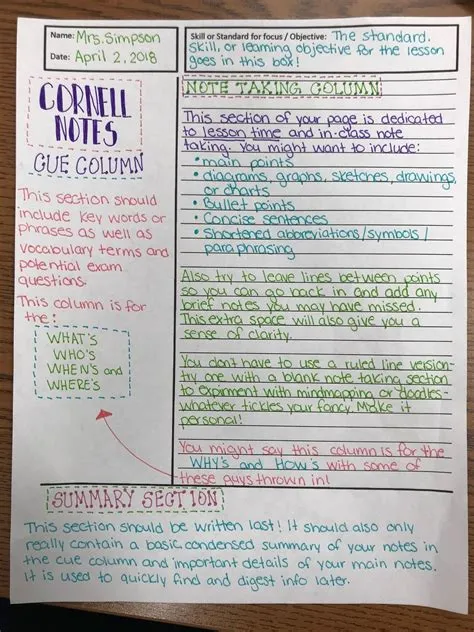 Name: Mrs. Simpson
Date: April 2, 2018
Skill or Standard for focus / Objective: The standard,
skill, or learning objective for the lesson
goes in this box!
CORNELL
NOTES
CUE COLUMN
This section should
include key words or
phrases as well as
vocabulary terms and
potential exam
questions.
This column is for
the:
WHAT'S
WHO'S
WHEN'S and
WHERE'S
NOTE TAKING COLUMN
This section of your page is dedicated
to lesson time and in-class note
taking. You might want to include:
• main points
• diagrams, graphs, sketches, drawings,
or charts
• Bullet points
• Concise sentences
• Shortened abbreviations/symbols/
paraphrasing
Also try to leave lines between points
so you can go back in and add any
brief notes you may have missed.
This extra space will also give you a
sense of clarity.
You don't have to use a ruled line version-
try one with a blank note taking section
to expirment with mindmapping or doodles-
whatever tickles your fancy. Make it
personal!
You might say this column is for the
WHY's and HOW's with some of
these guys thrown in!
SUMMARY SECTION
This section should be written last! It should also only
really contain a basic condensed summary of your notes in
the cue column and important details of your main notes.
It is used to quickly find and digest info later.